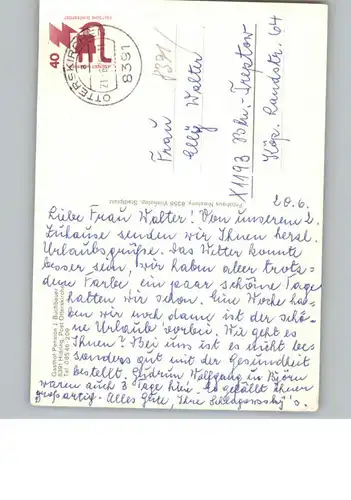 40
OTTERSKIRCHEN
8391
8391
Frau
Elly Walter
X1193 Bln.-Treptow
Köp. Landstr. 64
20.6.
Liebe Frau Walter! Von unserem 2.
Zuhause senden wir Ihnen herzl.
Urlaubsgrüße. Das Wetter könnte
besser sein, wir haben aber trotz-
dem Farbe, ein paar schöne Tage
hatten wir schon. Eine Woche ha-
ben wir noch dann ist der schö-
ne Urlaub vorbei. Wie geht es
Ihnen? Bei uns ist es nicht bes
sonders gut mit der Gesundheit
bestellt. Gudrun Wolfgang u. Björn
waren auch 3 Tage hier. Es gefällt ihnen
großartig. Alles Gute, Ihre
Gasthof-Pension J. Buchbauer
8391 Hilking, Post Otterskirchen
Tel. 08546-208
8358 Vilshofen, Stadtplatz